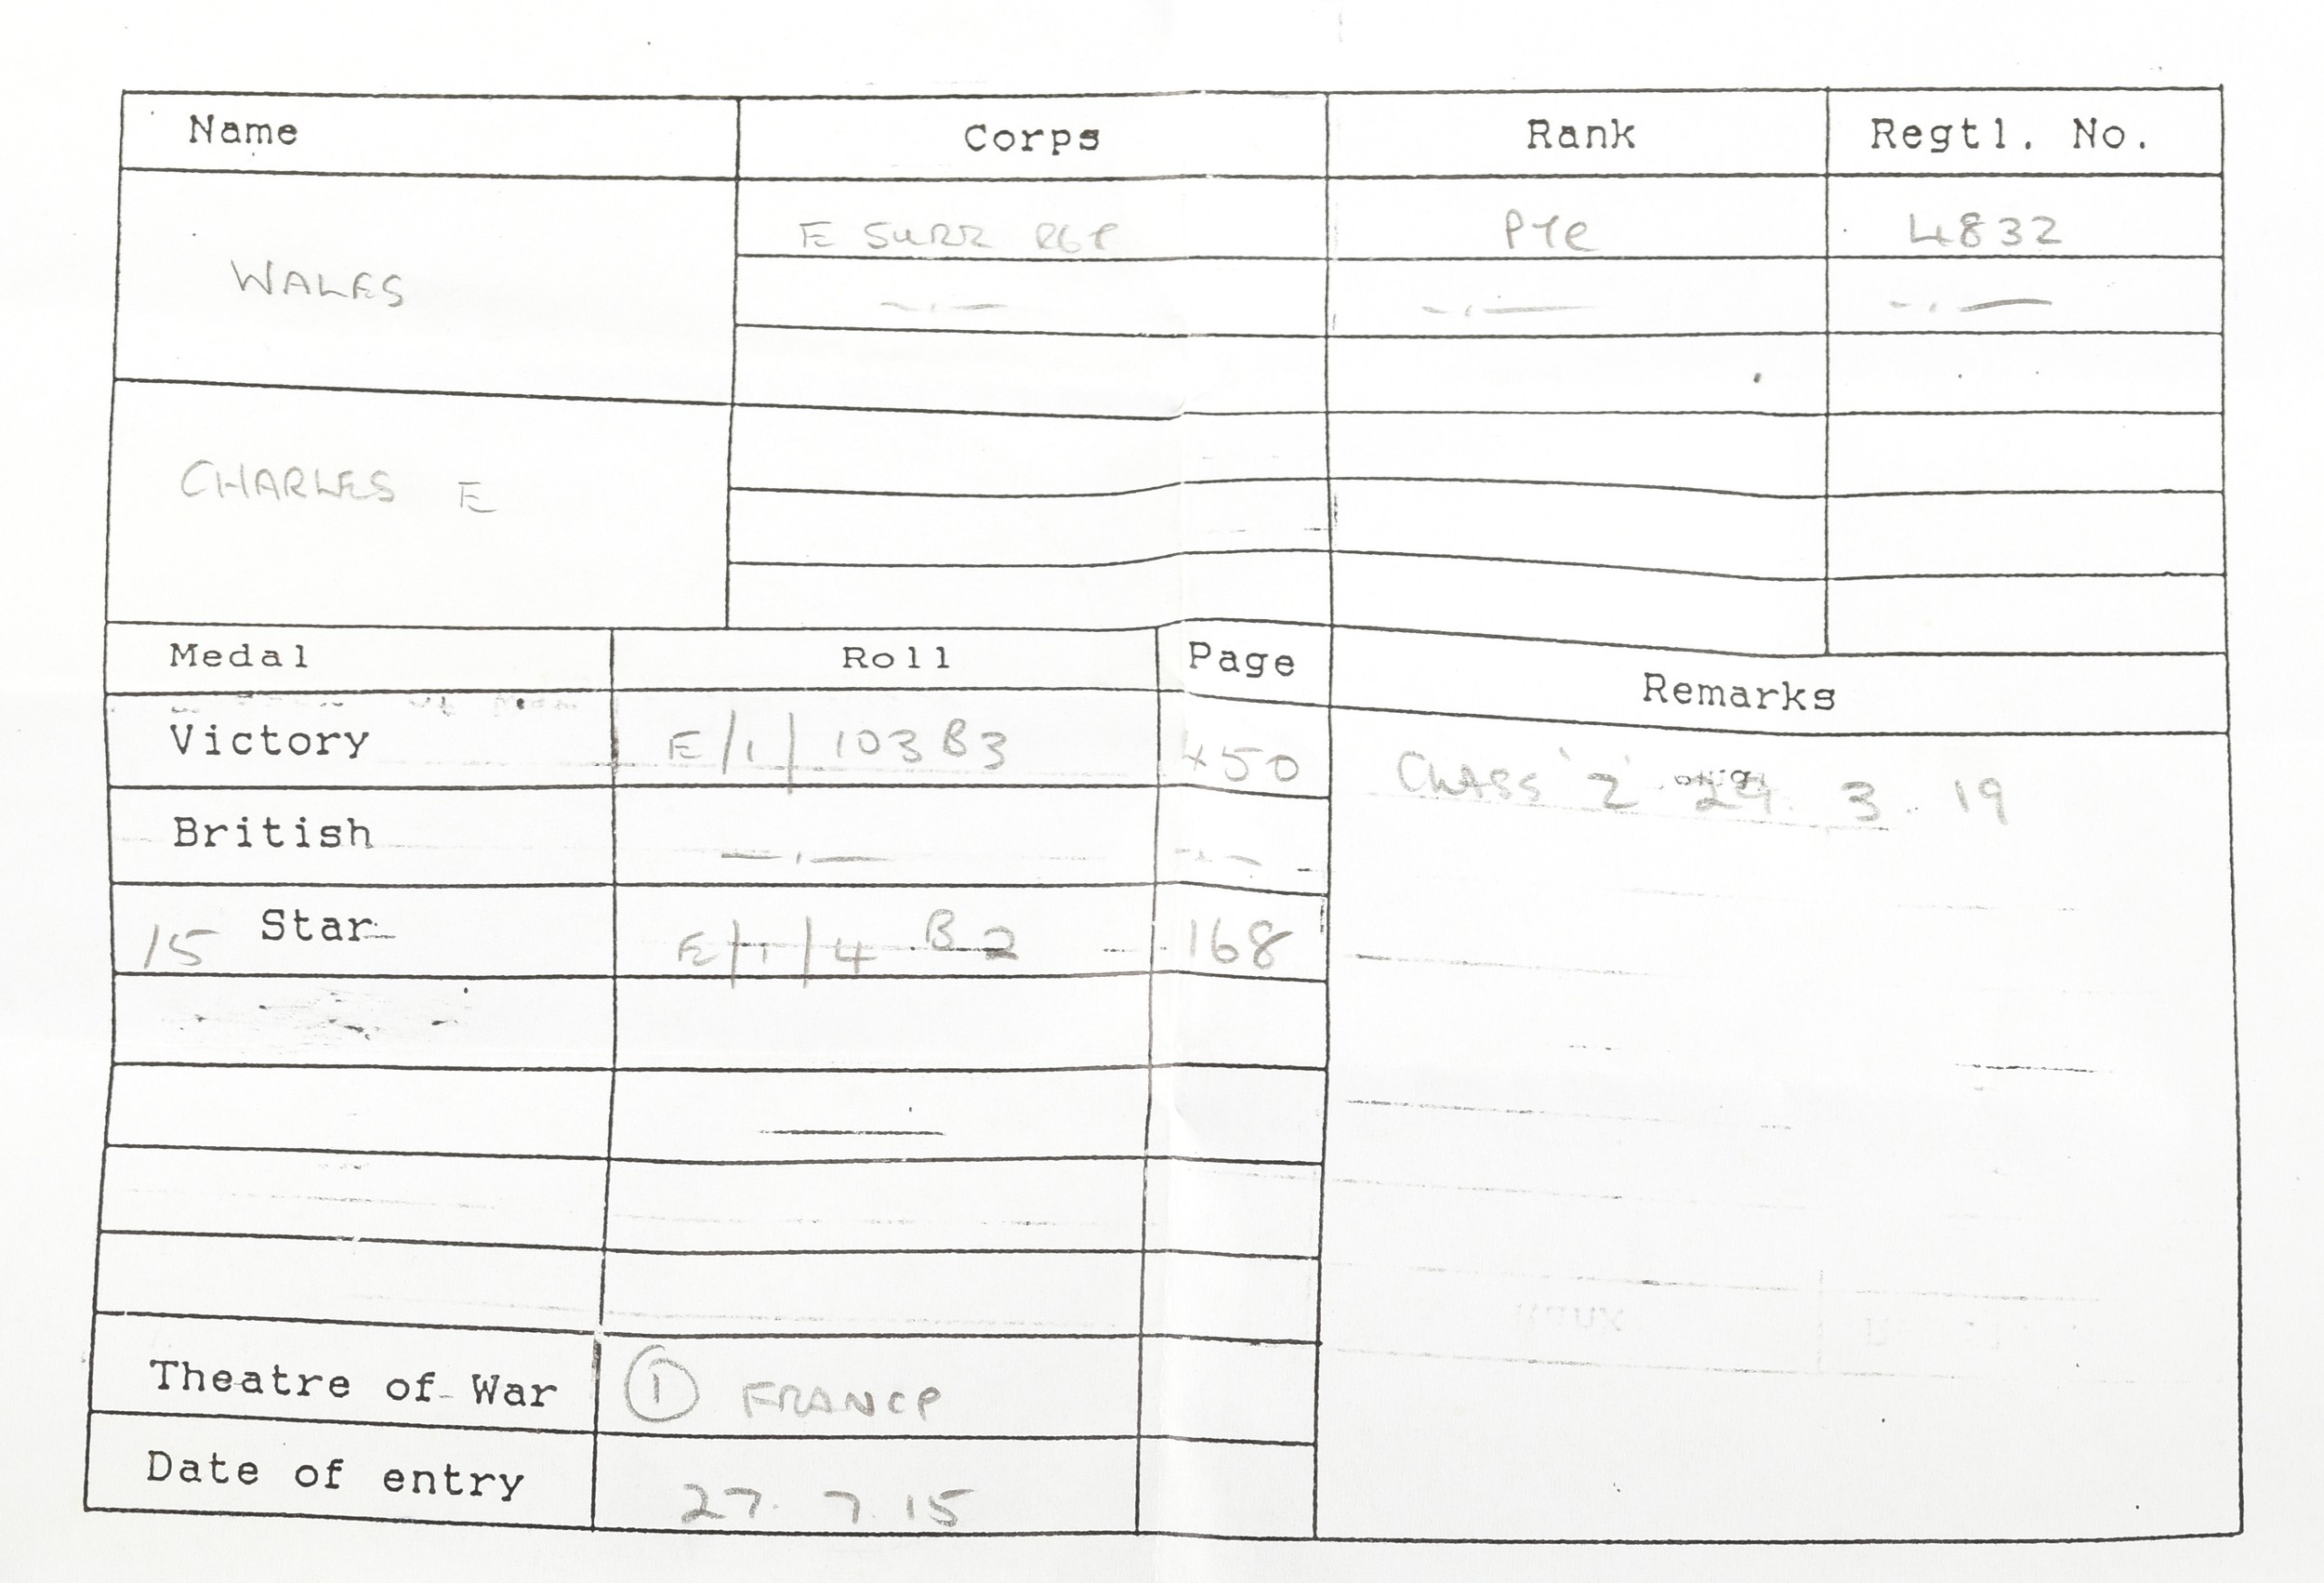 Name Corps Rank Regtl. No.
WALES E SURR RGT PTE 4832
CHARLES E
Medal Roll Page Remarks
Victory E/1/103 B3 450 CLASS 'Z' 3. 19
British
15 Star E/1/4 B 2 168
Theatre of War 1 FRANCE
Date of entry 27. 7. 15